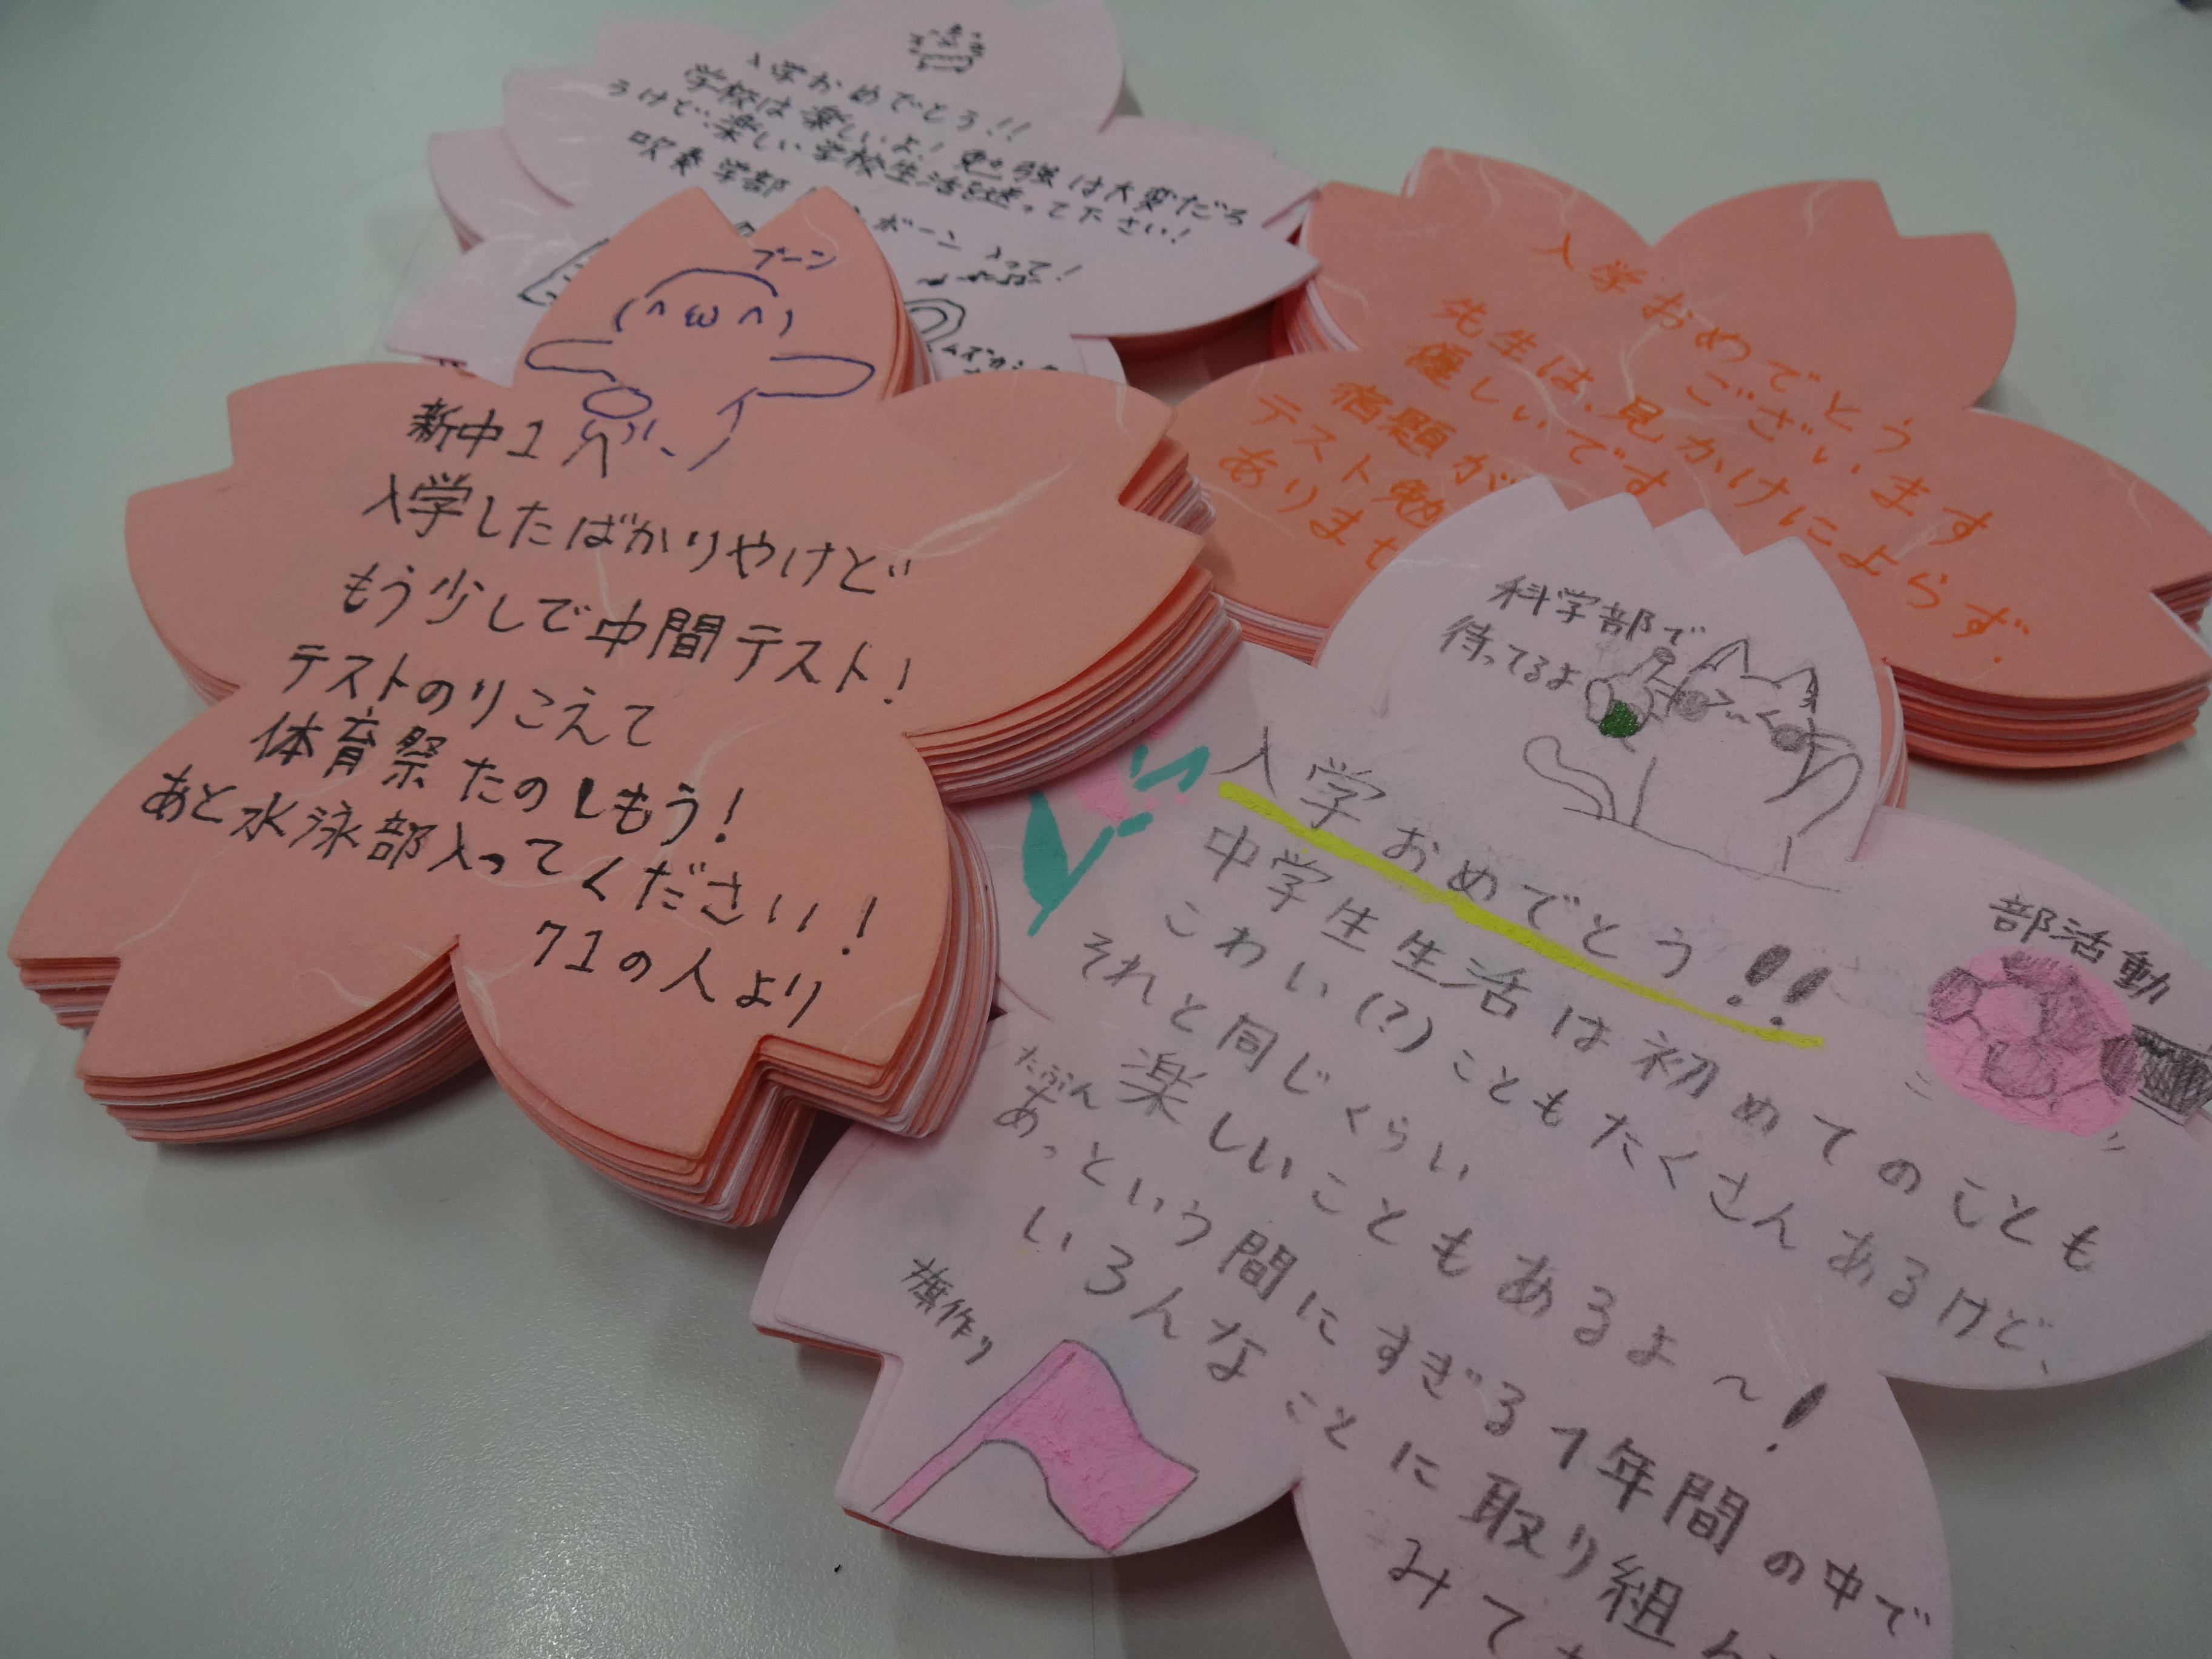 入学おめでとう!!
学校は楽しいよ!勉強は大変だろ
うけど、楽しい学校生活を送って下さい!
吹奏学部
ボーン 入って!
ブーン
(^ω^)
新中1へ
入学したばかりやけど
もう少しで中間テスト!
テストのりこえて
体育祭たのしもう!
あと水泳部入ってください!
71の人より
入学おめでとう
ございます
先生は、見かけによらず、
優しいです
宿題が
テスト勉
ありませ
科学部で
待ってるよ
入学おめでとう!!
中学生生活は初めてのことも
こわい(?)こともたくさんあるけど、
それと同じくらい
たぶん
楽しいこともあるよ~!
あっという間にすぎる1年間の中で
いろんなことに取り組ん
みて
部活動
旗作り